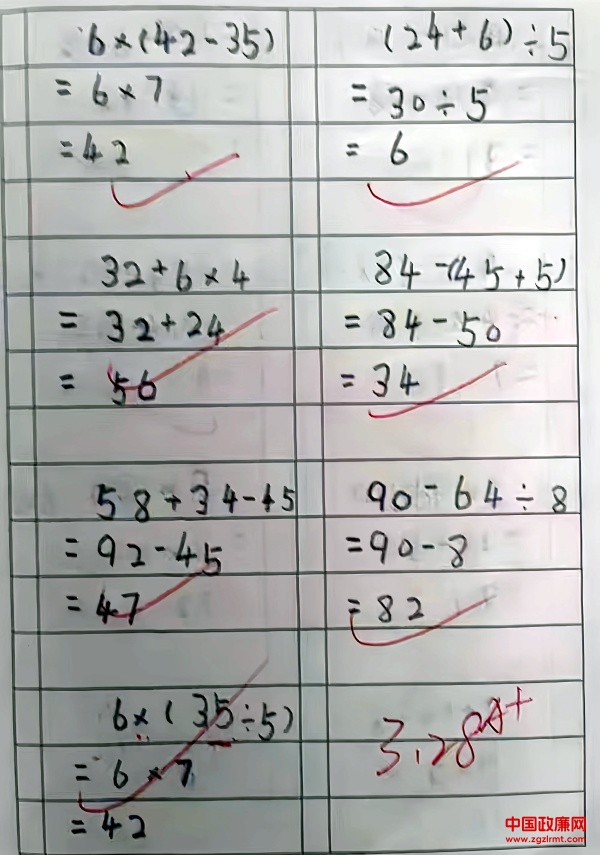 6×(42-35)
=6×7
=42
(24+6)÷5
=30÷5
=6
32+6×4
=32+24
=56
84-(45+5)
=84-50
=34
58+34-45
=92-45
=47
90-64÷8
=90-8
=82
6×(35÷5)
=6×7
=42
3.28 A+
中国政廉网
www.zgzlrmt.com